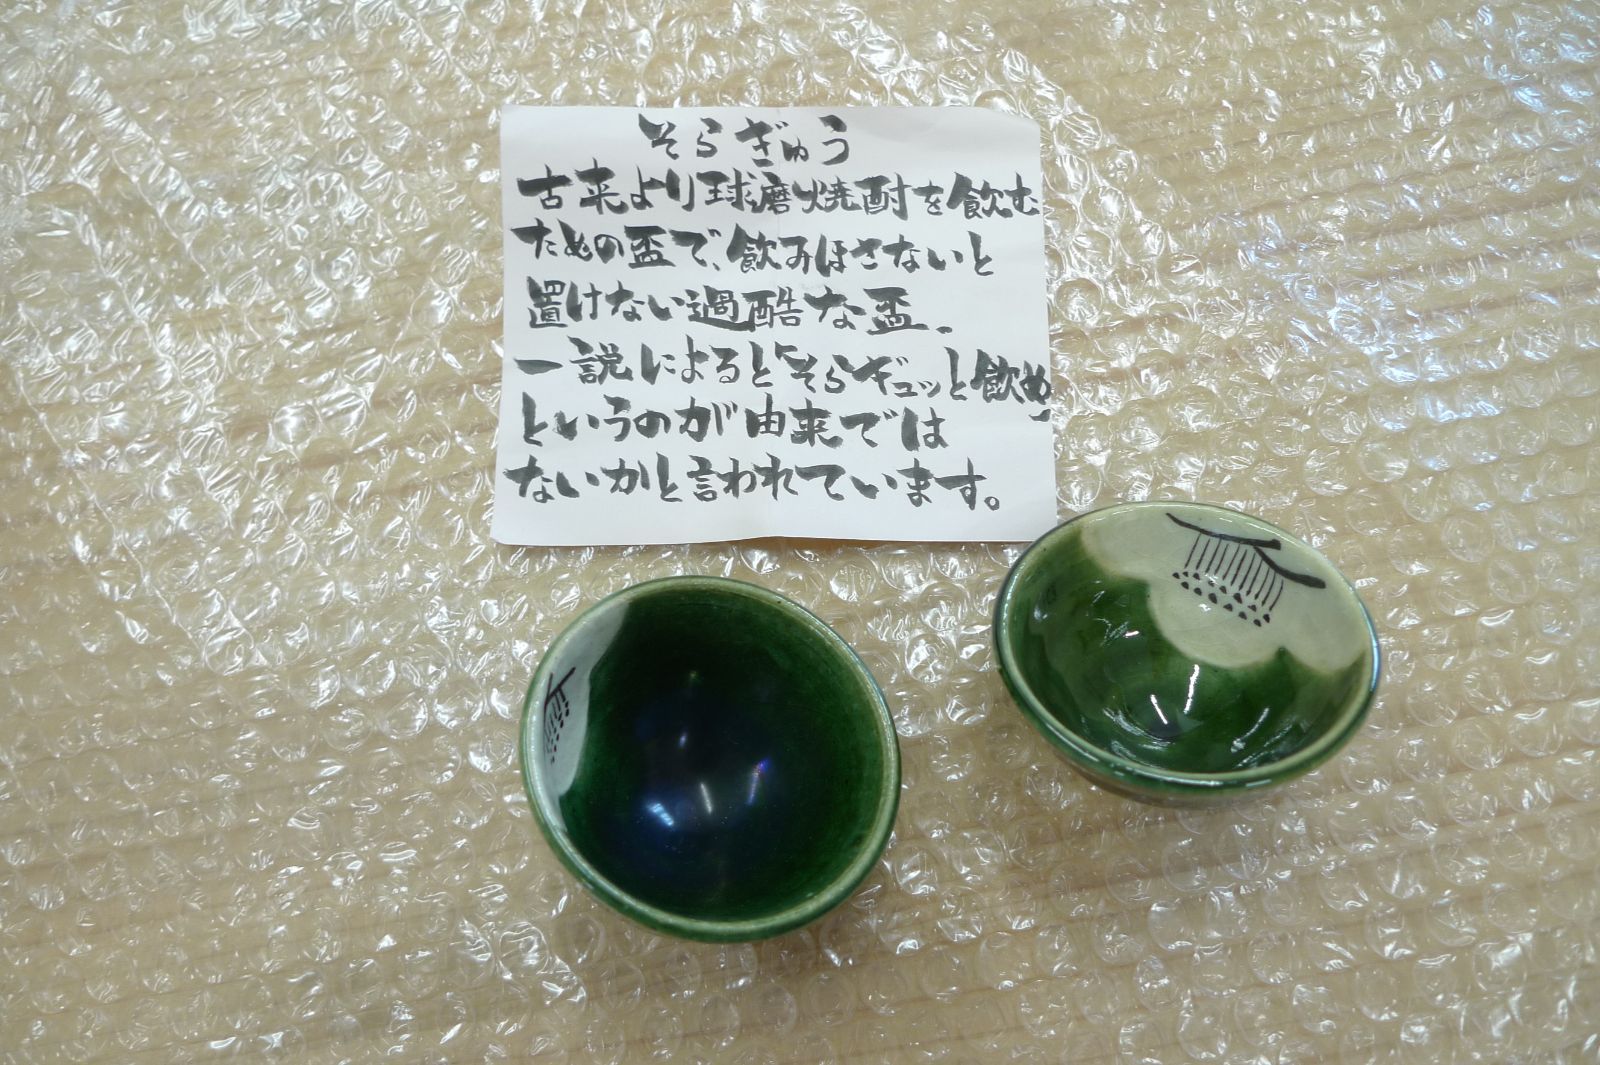 そらぎゅう
古来より球磨焼酎を飲む
ための盃で、飲みほさないと
置けない過酷な盃、
一説によると「そらギュッと飲め」
というのが由来では
ないかと言われています。